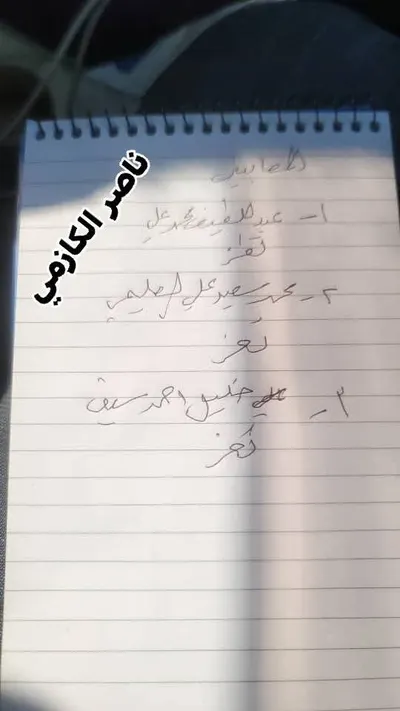 المصابين
١- عبد اللطيف محمد علي
تعز
٢- محمد سعيد علي الصليمي
تعز
٣- خليل احمد سيف
تعز
ناصر الكازمي